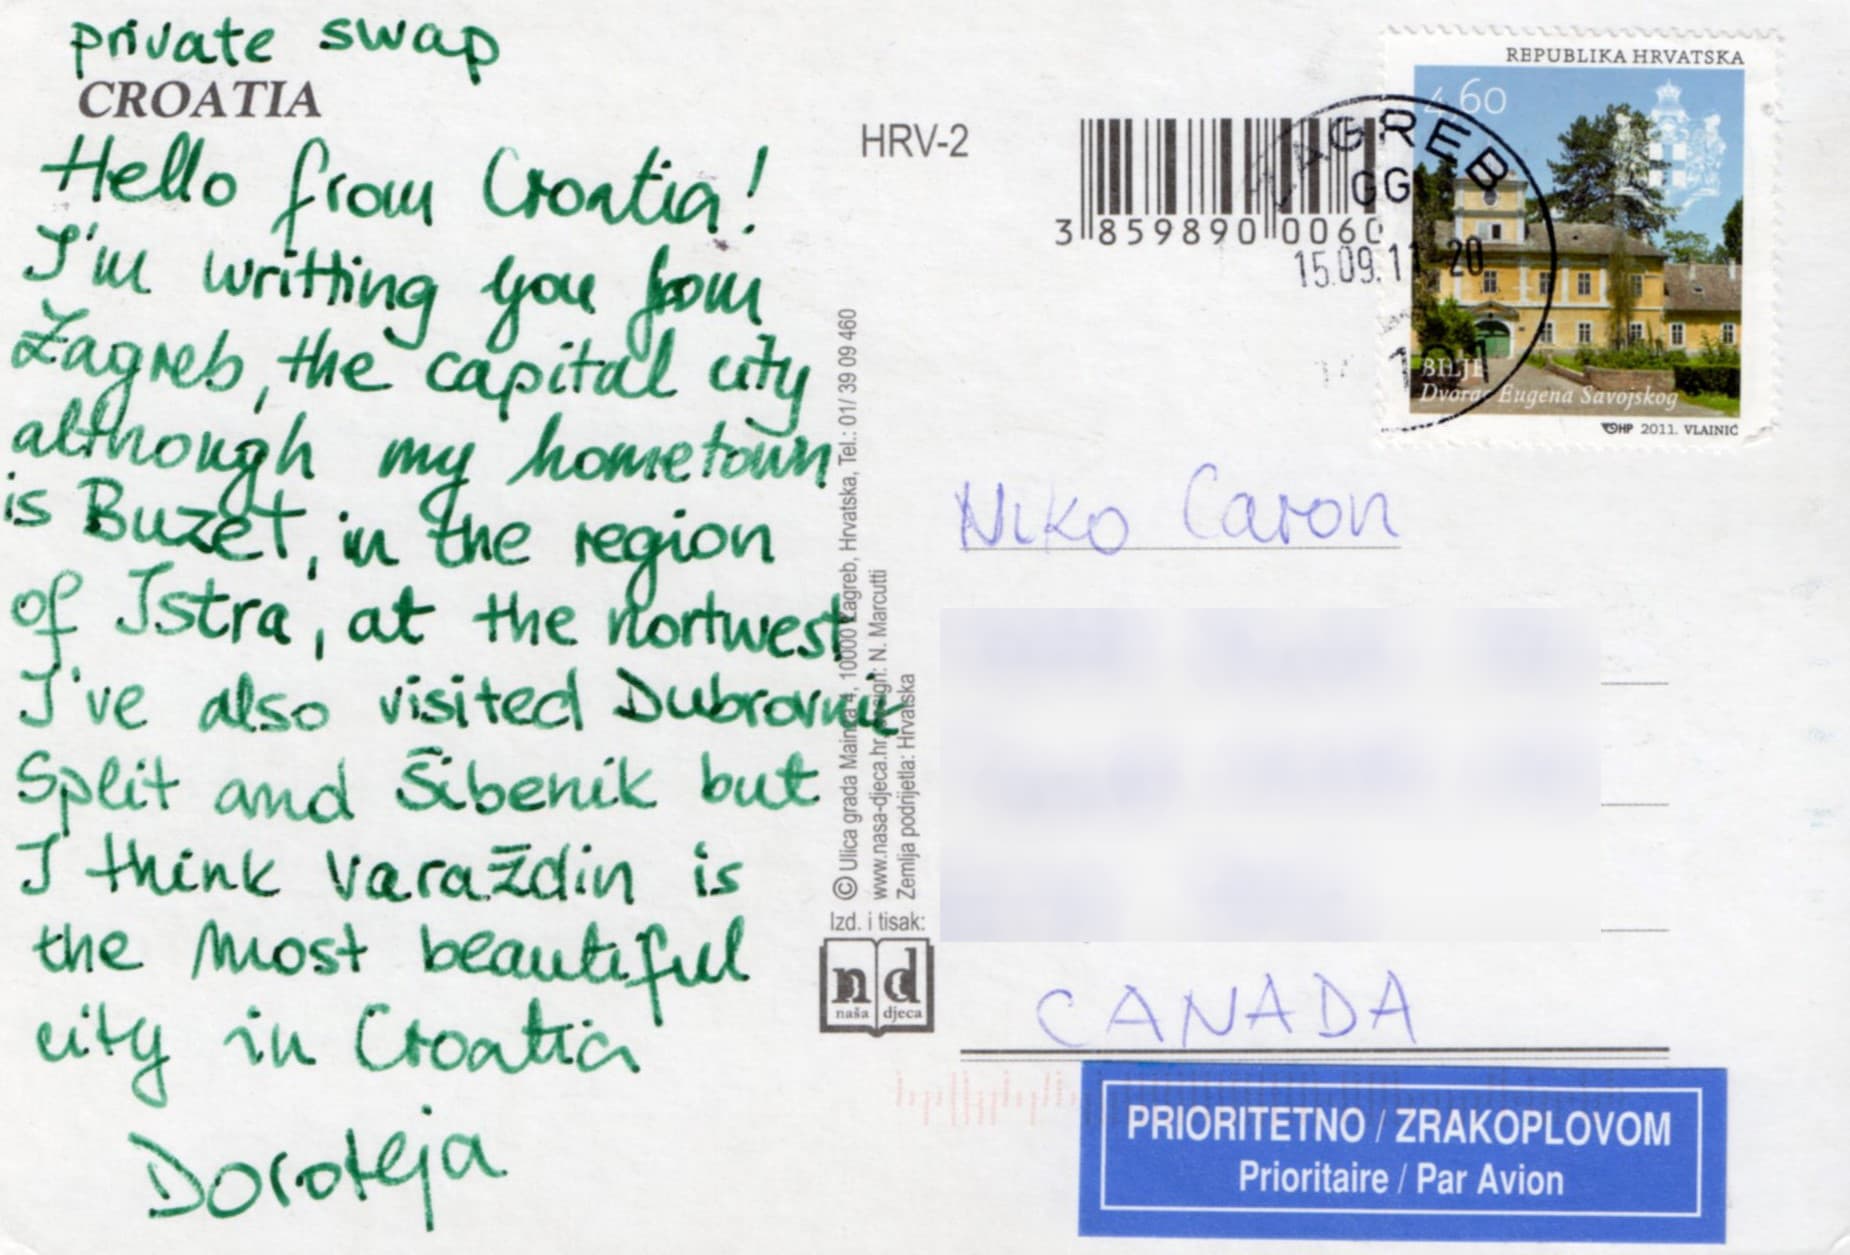 private swap
CROATIA
Hello from Croatia!
I'm writting you from
Zagreb, the capital city
although my hometown
is Buzet, in the region
of Istra, at the nortwest
I've also visited Dubrovnik
Split and Šibenik but
I think Varaždin is
the most beautiful
city in Croatia
Doroteja
HRV-2
3 859890 0060
© Ulica grada Mainza 4, 10000 Zagreb, Hrvatska, Tel.: 01/ 39 09 460
www.nasa-djeca.hr, design: N. Marcutti
Zemlja podrijetla: Hrvatska
Izd. i tisak:
nd
naša djeca
REPUBLIKA HRVATSKA
4,60
BILJE
Dvorac Eugena Savojskog
HP 2011. VLAINIĆ
ZAGREB
GG
15.09.11-20
101
Niko Caron
CANADA
PRIORITETNO / ZRAKOPLOVOM
Prioritaire / Par Avion